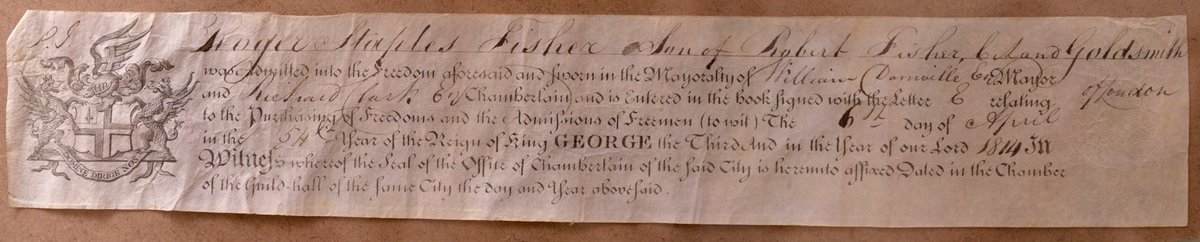 Roger Staples Fisher Son of Robert Fisher, Cit and Goldsmith
of London
was admitted into the Freedom aforesaid and sworn in the Mayoralty of William Domville Esq Mayor
and Richard Clark Esq Chamberlain and is Entered in the book signed with the Letter E relating
to the Purchasing of Freedoms and the Admissions of Freemen (to wit) The 6th day of April
in the 54th Year of the Reign of King GEORGE the Third And in the Year of our Lord 1814 In
Witness whereof the Seal of the Office of Chamberlain of the said City is hereunto affixed Dated in the Chamber
of the Guild-hall of the same City the day and Year abovesaid.
DOMINE DIRIGE NOS